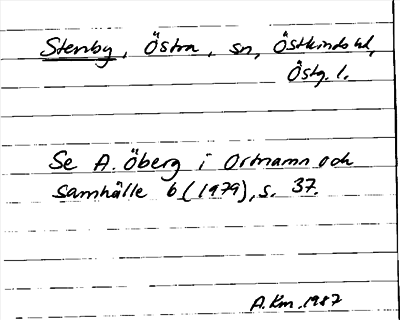 Stenby, Östra, sn, Östkinds hd,
Östg. l.
Se A. Öberg i Ortnamn och
samhälle 6 (1979), s. 37.
A.Km. 1987